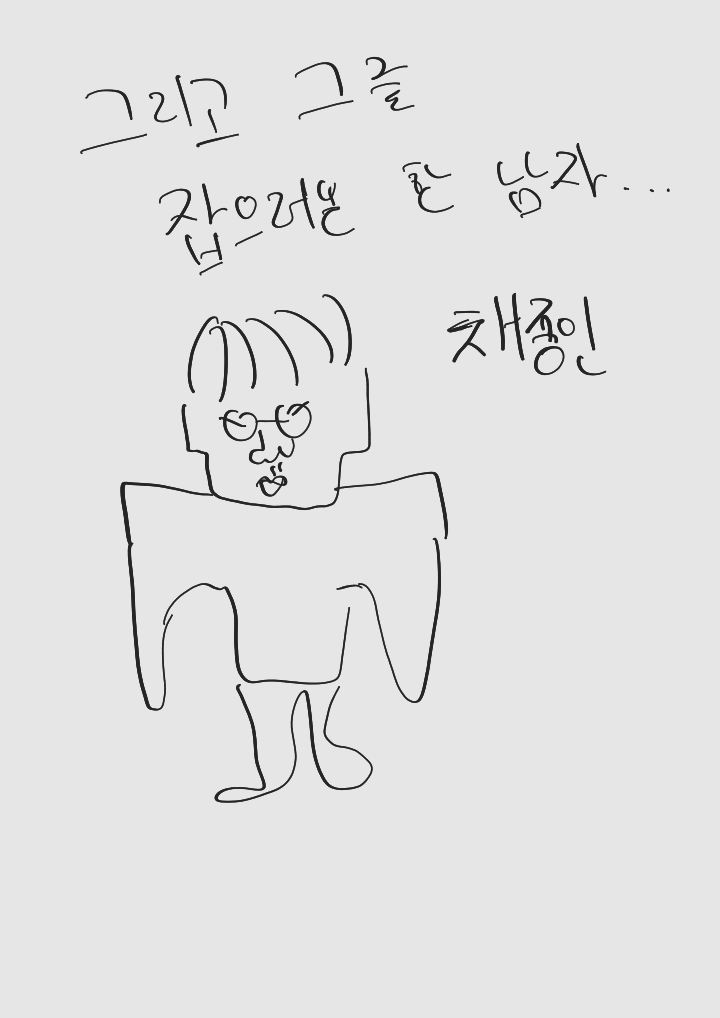 그리고 그를
잡으러온 한 남자...
채종인